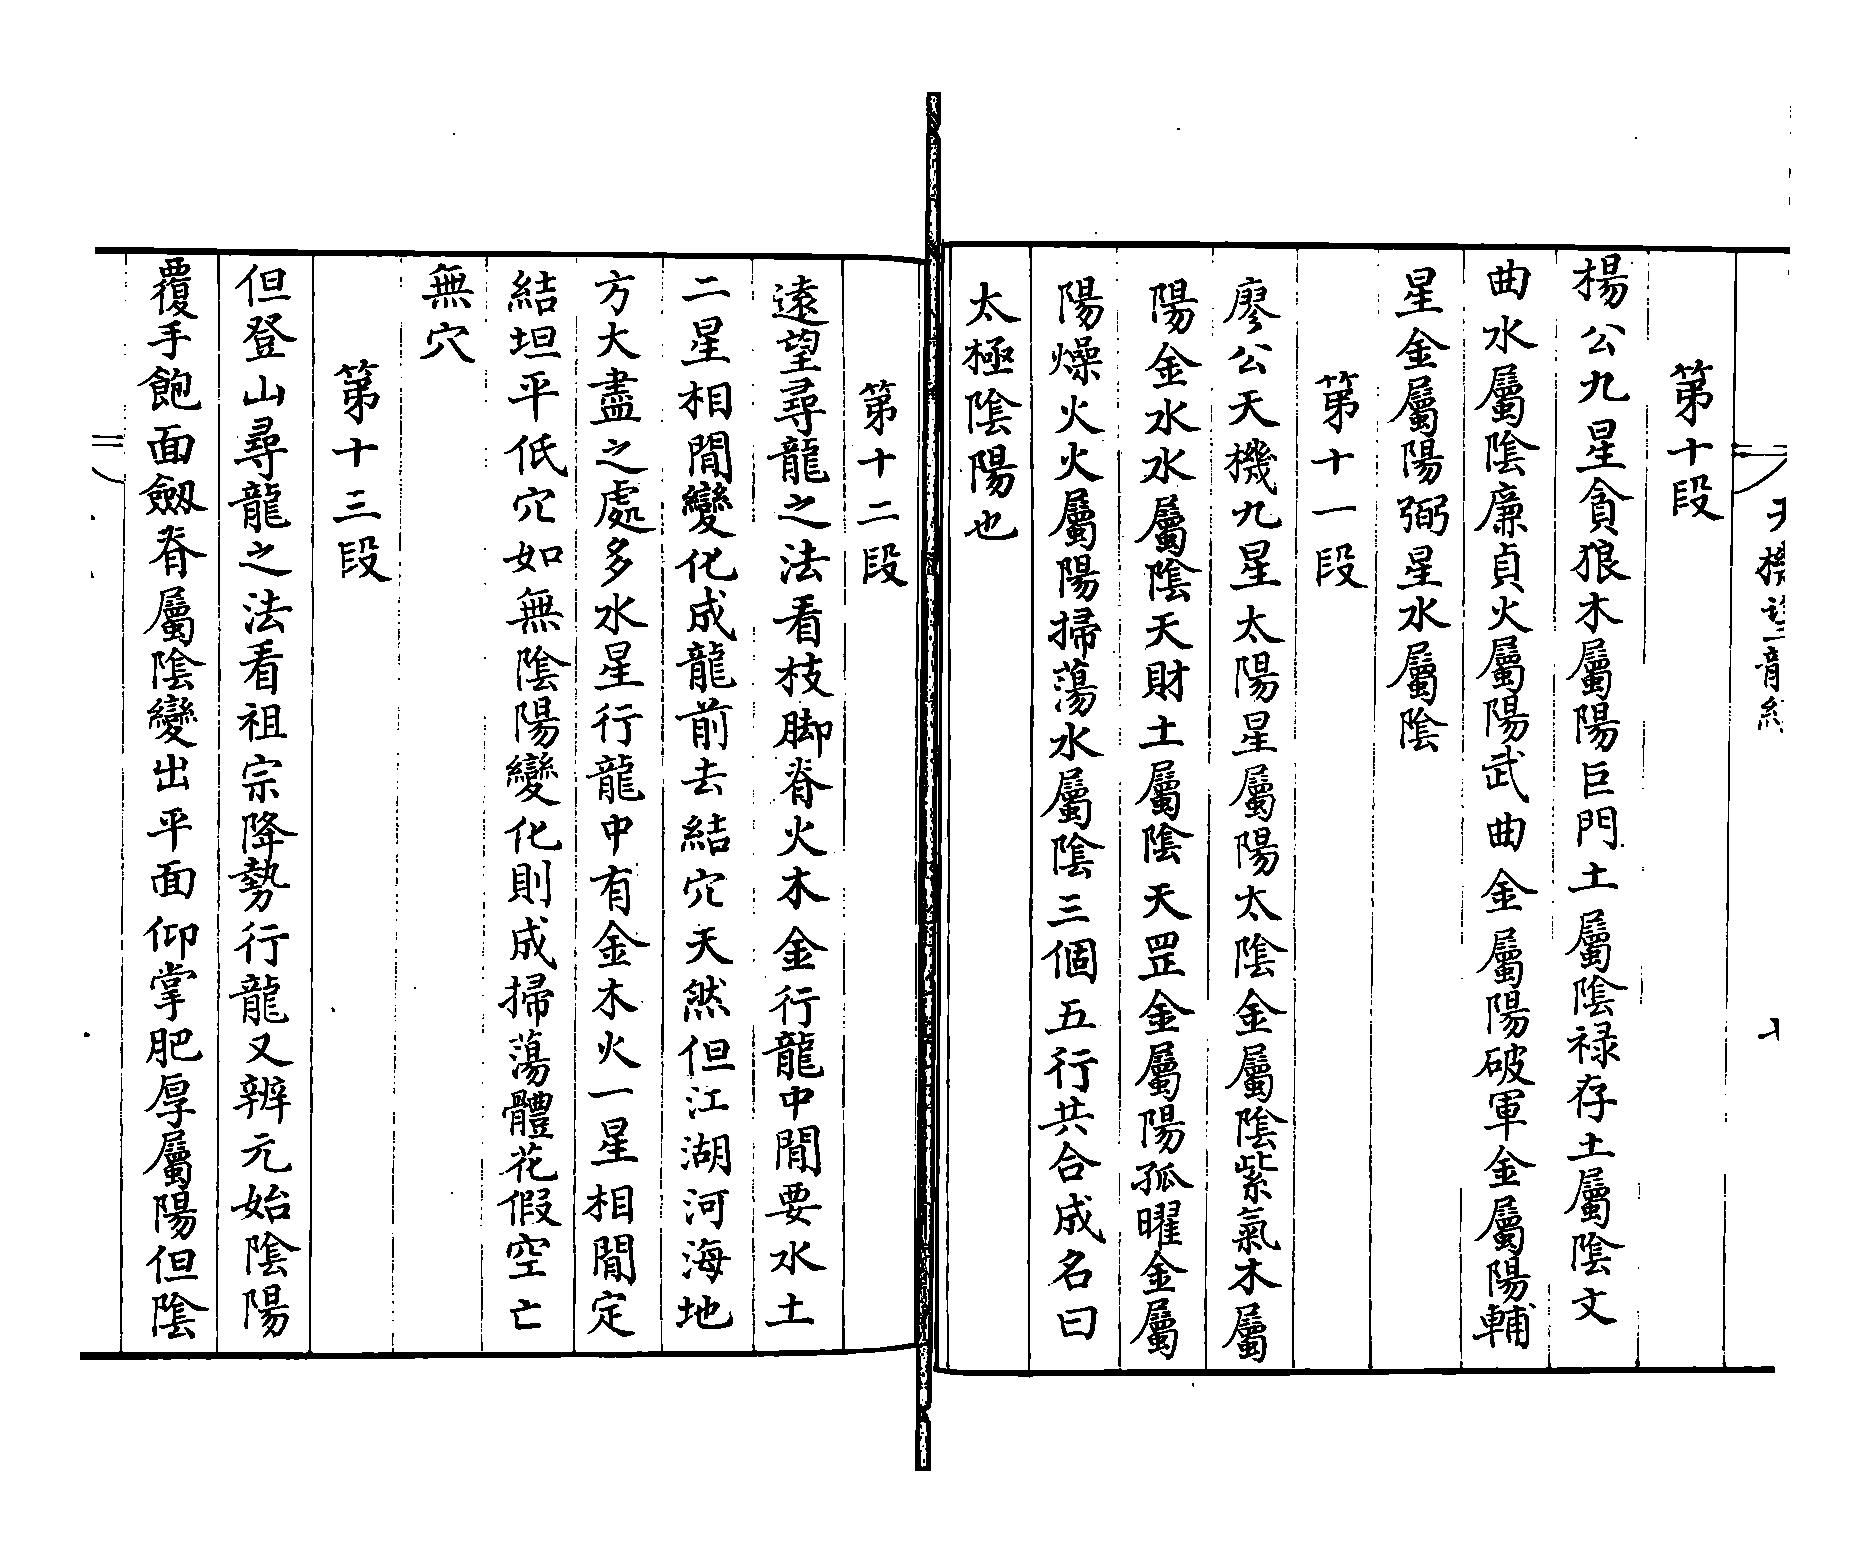 第十段
楊公九星貪狼木屬陽巨門土屬陰禄存土屬陰文
曲水屬陰廉貞火屬陽武曲金屬陽破軍金屬陽輔
星金屬陽弼星水屬陰
第十一段
廖公天機九星太陽星屬陽太陰金屬陰紫氣木屬
陽金水水屬陰天財土屬陰天罡金屬陽孤曜金屬
陽燥火火屬陽掃蕩水屬陰三個五行共合成名曰
太極陰陽也
第十二段
遠望尋龍之法看枝脚脊火木金行龍中間要水土
二星相間變化成龍前去結穴天然但江湖河海地
方大盡之處多水星行龍中有金木火一星相間定
結坦平低穴如無陰陽變化則成掃蕩體花假空亡
無穴
第十三段
但登山尋龍之法看祖宗降勢行龍又辨元始陰陽
覆手飽面劔脊屬陰變出平面仰掌肥厚屬陽但陰